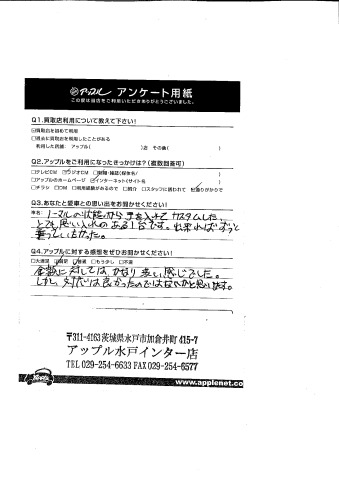 アップル アンケート用紙
この度は当店をご利用いただきありがとうございました。
Q1.買取店利用について教えて下さい!
☑買取店を初めて利用
□過去に買取店を利用したことがある
利用した店舗: アップル( )店 その他( )
Q2.アップルをご利用になったきっかけは?(複数回答可)
□テレビCM ☑ラジオCM □新聞・雑誌(媒体名/ )
□アップルのホームページ ☑インターネット(サイト名 )
□チラシ □DM □利用経験があるので □紹介 □スタッフに誘われて ☑通りがかりで
Q3.あなたと愛車との思い出をお聞かせください!
車名: ノーマルの状態から手を入せてカスタムした、
とても思い入れのある1台です。出来ればずっと
乗っていたかった。
Q4.アップルに対する感想をぜひお聞かせください!
□大満足 ☑満足 ☑普通 □もう少し □不満
金額に対しては、かなり渋い感じでした。
しかし、対応は良かったのではないかと思います。
〒311-4163茨城県水戸市加倉井町415-7
アップル水戸インター店
TEL 029-254-6633 FAX 029-254-6577
www.applenet.co